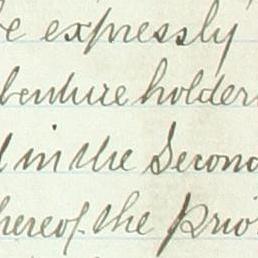 be expressly
benture holder
in the Second
hereof the prio